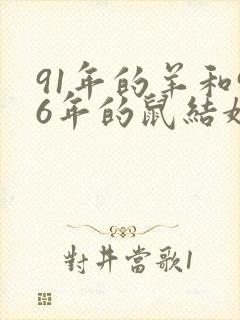 91年的羊和9
6年的鼠結婚
對井當歌1